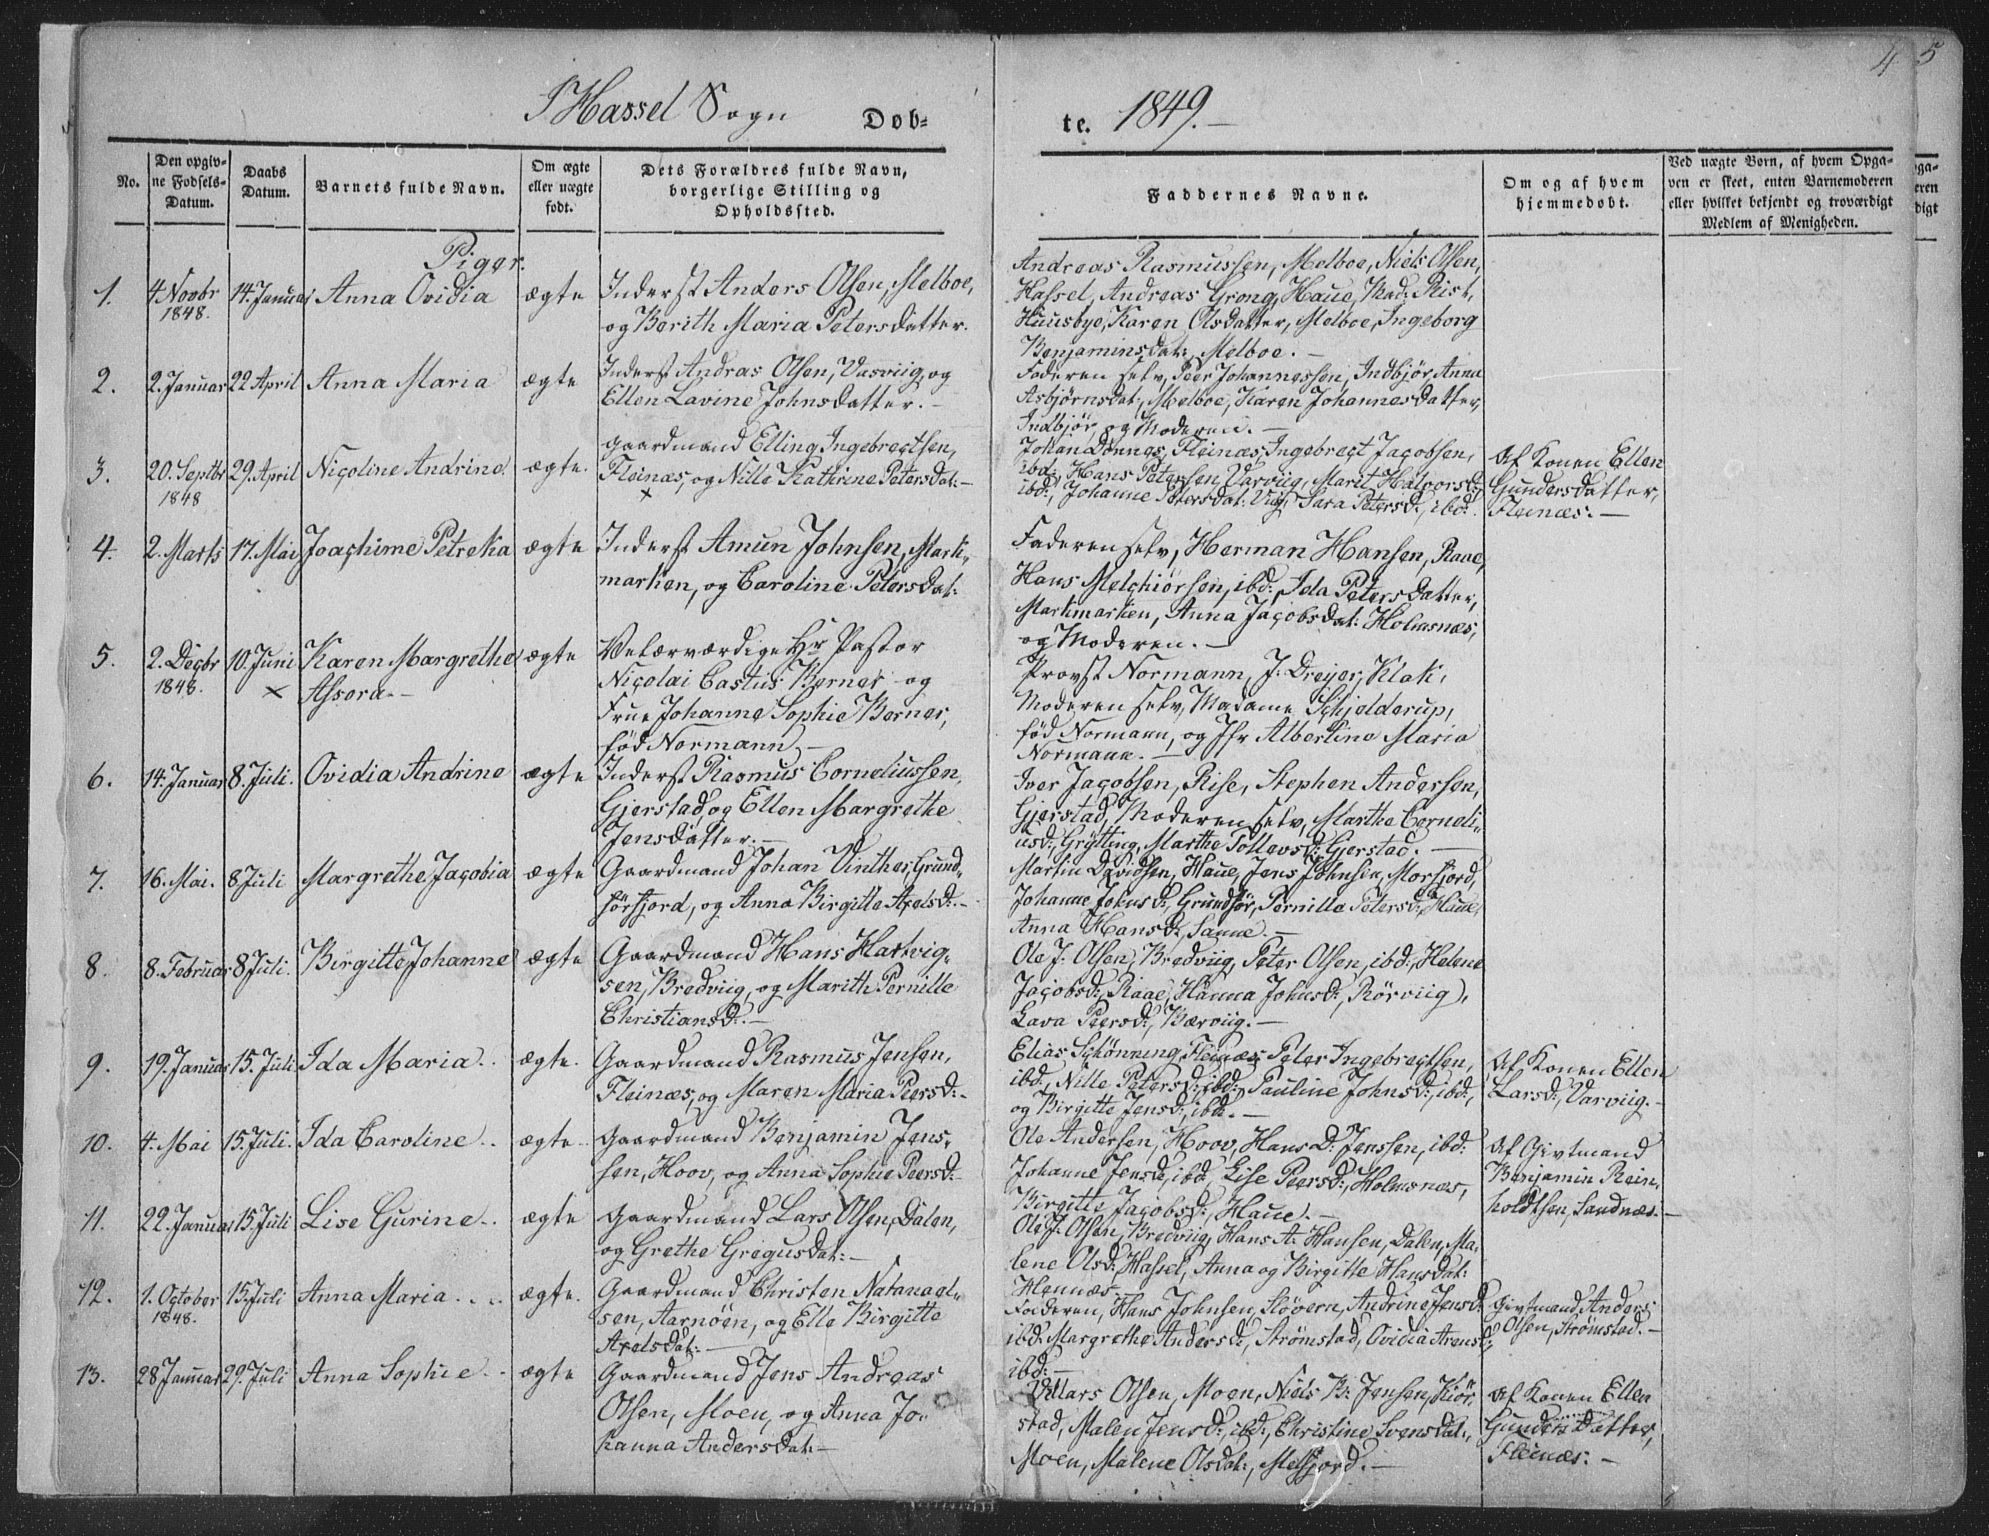 4 5
I Hassel Sogn Døb-
te. 1849.-
No.
Den opgiv-
ne Fødsels-
Datum.
Daabs
Datum.
Barnets fulde Navn.
Om ægte
eller uægte
født.
Dets Forældres fulde Navn,
borgerlige Stilling og
Opholdssted.
Faddernes Navne.
Om og af hvem
hjemmedøbt.
Ved uægte Børn, af hvem Opga-
ven er skeet, enten Barnemoderen
eller hvilket bekjendt og troværdigt
Medlem af Menigheden.
Piger.
1. 4 Novbr 1848. 14. Januar Anna Ovidia ægte
Inderst Anders Olsen, Melboe,
og Berith Maria Petersdatter.
Andreas Rasmussen, Melboe, Niels Olsen,
Hassel, Andreas Grong, Haue, Mad: Rist,
Huusbye, Karen Olsdatter, Melboe, Ingeborg
Benjaminsdat:, Melboe.-
2. 2. Januar 22 April Anna Maria ægte
Inderst Andras Olsen, Vasviig, og
Ellen Lavine Johnsdatter.-
Faderen selv, Peer Johannessen, Indbjør, Anna
Asbjørnsdat:, Melboe, Karen Johannesdatter,
Indbjør, og Moderen.-
3. 20. Septbr 1848 29. April Nicoline Andrine ægte.
Gaardmand Elling Ingebrectsen,
Fleinæs, og Nille Kathrine Petersdat:-
Johan Dønnes, Fleinæs, Ingebrect Jacobsen,
ibd:, Hans Petersen, Varviig, Marit Halvorsd:
ibd:, Johanne Petersdat: Vig, Sara Petersd:, ibd:
Af Konen Ellen
Gundersdatter,
Fleinæs.-
4. 2. Marts 17. Mai Joachime Petreka ægte
Inderst Amun Johnsen, Mark-
marken, og Caroline Petersdat:
Faderen selv, Herman Hansen, Raae,
Hans Melchiørsen, ibd:, Ida Petersdatter,
Markmarken, Anna Jacobsdat: Holmsnæs,
og Moderen.-
5. 2. Decbr 1848. 10. Juni × Karen Margrethe
Assora.- ægte
Velærværdige Hr Pastor
Nicolai Castus Berner og
Frue Johanne Sophie Berner,
fød Normann.-
Provst Normann, J: Dreyer, Klak,
Moderen selv, Madame Schjelderup,
fød Normann, og Jfr Albertine Maria
Normann.-
6. 14. Januar 8. Juli. Ovidia Andrine ægte
Inderst Rasmus Corneliussen,
Gjerstad, og Ellen Margrethe
Jensdatter.-
Iver Jacobsen, Rise, Stephen Andersen,
Gjerstad, Moderen selv, Marthe Corneli-
usd:, Grytting, Marthe Tollevsd: Gjerstad.-
7. 16. Mai. 8 Juli Margrethe Jacobia ægte
Gaardmand Johan Vinther, Grund-
førfjord, og Anna Birgitte Axelsd:-
Martin Davidsen, Haue, Jens Johnsen, Morfjord,
Johanne Johnsd:, Grundfør, Pernille Petersd:, Haue,
Anna Hansd:, Sanne.-
8. 8. Februar 8 Juli. Birgitte Johanne ægte
Gaardmand Hans Hartvig-
sen, Bredviig, og Marith Pernille
Christiansd:-
Ole J: Olsen, Bredviig, Peter Olsen, ibd:, Helene
Jacobsd:, Raae, Hanna Johnsd:, Rørviig,
Lava Peersd:, Bærviig.-
9. 19. Januar 15. Juli Ida Maria.. ægte.
Gaardmand Rasmus Jensen,
Fleinæs, og Maren Maria Peersd:-
Elias Schønning, Fleinæs, Peter Ingebrectsen,
ibd:, Nille Petersd: ibd:, Pauline Johnsd:, ibd:,
og Birgitte Jensd:, ibd:-
Af Konen Ellen
Larsd:, Varviig.-
10. 4. Mai 15. Juli. Ida Caroline.. ægte..
Gaardmand Benjamin Jens-
sen, Hoov, og Anna Sophie Peersd:
Ole Andersen, Hoov, Hans D: Jenssen, ibd:
Johanne Jensd: ibd:, Lise Peersd:, Holmsnæs,
Birgitte Jacobsd:, Haue.-
Af Givtmand
Benjamin Rein-
holdtsen, Sandnæs.-
11. 22. Januar 15. Juli Lise Gurine.. ægte
Gaardmand Lars Olsen, Dalen,
og Grethe Gregusdat:-
Ole J: Olsen, Bredviig, Hans A: Hansen, Dalen, Ma-
lene Olsd:, Hassel, Anna og Birgitte Hansdat:
Hennæs.-
12. 1. October 1848. 15 Juli Anna Maria.... ægte.
Gaardmand Christen Natanael-
sen, Aarnøen, og Elle Birgitte
Axelsdat:-
Faderen, Hans Johnsen, Støvern, Andrine Jensd:
ibd: Margrethe Andersd:, Strømstad, Ovidia Arensd:,
ibd:-
Givtmand Anders
Olsen, Strømstad.-
13. 28 Januar 29. Juli Anna Sophie.. ægte
Gaardmand Jens Andreas
Olsen, Moen, og Anna Jo-
hanna Andersdat:-
Lars Olsen, Moen, Niels B: Jensen, Kiør-
stad, Malen Jensd:, ibd:, Christine Svensdat:,
Moen, Malene Olsdat:, Melfjord.-
Af Konen Ellen
Gundersdatter,
Fleinæs.-